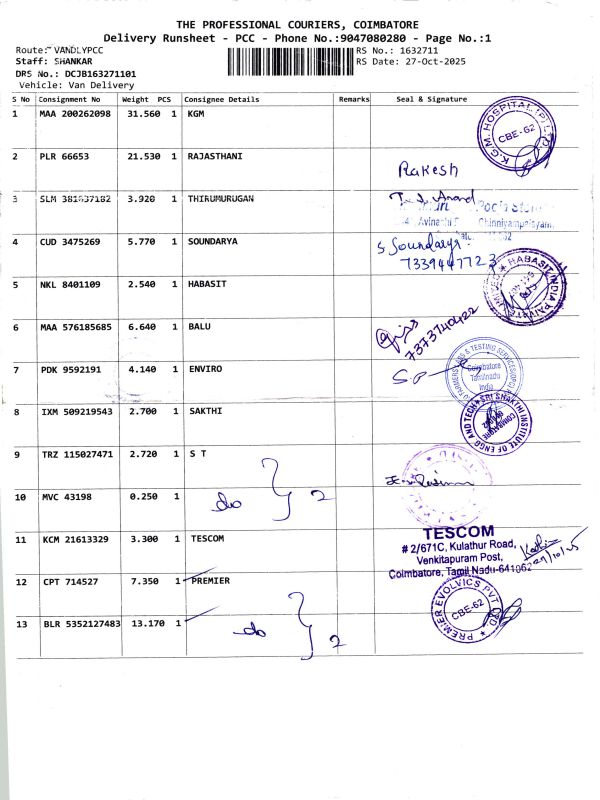 THE PROFESSIONAL COURIERS, COIMBATORE
Delivery Runsheet - PCC - Phone No.:9047080280 - Page No.:1
Route: VANDLYPCC
RS No.: 1632711
Staff: SHANKAR
RS Date: 27-Oct-2025
DRS No.: DCJB163271101
Vehicle: Van Delivery
S No Consignment No Weight PCS Consignee Details Remarks Seal & Signature
1 MAA 200262098 31.560 1 KGM
K.G.M. HOSPITAL (P) LTD CBE-62
2 PLR 66653 21.530 1 RAJASTHANI
Rakesh
3 SLM 381637182 3.920 1 THIRUMURUGAN
Anand
Avinashi Chinniyampalayam,
4 CUD 3475269 5.770 1 SOUNDARYA
S Soundarya
7339447723
5 NKL 8401109 2.540 1 HABASIT
HABASIT INDIA PRIVATE LIMITED
6 MAA 576185685 6.640 1 BALU
7373740422
7 PDK 9592191 4.140 1 ENVIRO
& TESTING SERVICES
Coimbatore
Tamilnadu
India
8 IXM 509219543 2.700 1 SAKTHI
SRI SHAKTHI INSTITUTE OF ENGG AND TECH
COIMBATORE
9 TRZ 115027471 2.720 1 S T
10 MVC 43198 0.250 1 do } 2
11 KCM 21613329 3.300 1 TESCOM
TESCOM
# 2/671C, Kulathur Road,
Venkitapuram Post,
Coimbatore, Tamil Nadu-641062
27/10/25
12 CPT 714527 7.350 1 PREMIER
PREMIER EVOLVICS PVT LTD. CBE-62
13 BLR 5352127483 13.170 1 do } 2